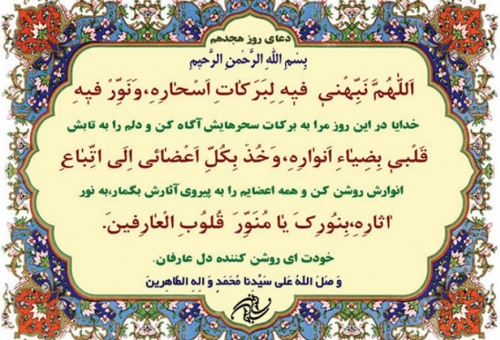 دعای روز هجدهم
بِسْمِ اللهِ الرَّحْمنِ الرَّحیمِ
اَللّهُمَّ نَبِّهْنی فیهِ لِبَرَکاتِ اَسْحارِهِ،وَنَوِّرْ فیهِ
خدایا در این روز مرا به برکات سحرهایش آگاه کن و دلم را به تابش
قَلْبی بِضِیاءِ اَنوارِهِ،وَخُذْ بِکُلِّ اَعْضائی اِلَی اتِّباعِ
انوارش روشن کن و همه اعضایم را به پیروی آثارش بگمار،به نور
اثارِهِ،بِنُورِکَ یا مُنَوِّرَ قُلُوبِ الْعارِفینَ.
خودت ای روشن کننده دل عارفان.
وَ صَلَ اللهُ عَلی سَیِّدنا مُحَمَدٍ وَ الِهِ الطّاهِرینَ